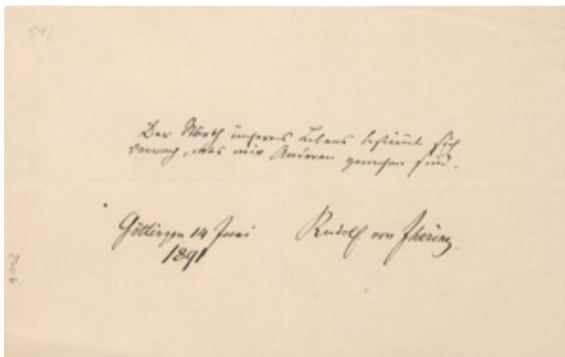 51)
Der Werth unseres Lebens bestimmt sich
darnach, was wir Anderen gewesen sind.
Göttingen 14 Juni
1891
Rudolf von Jhering.